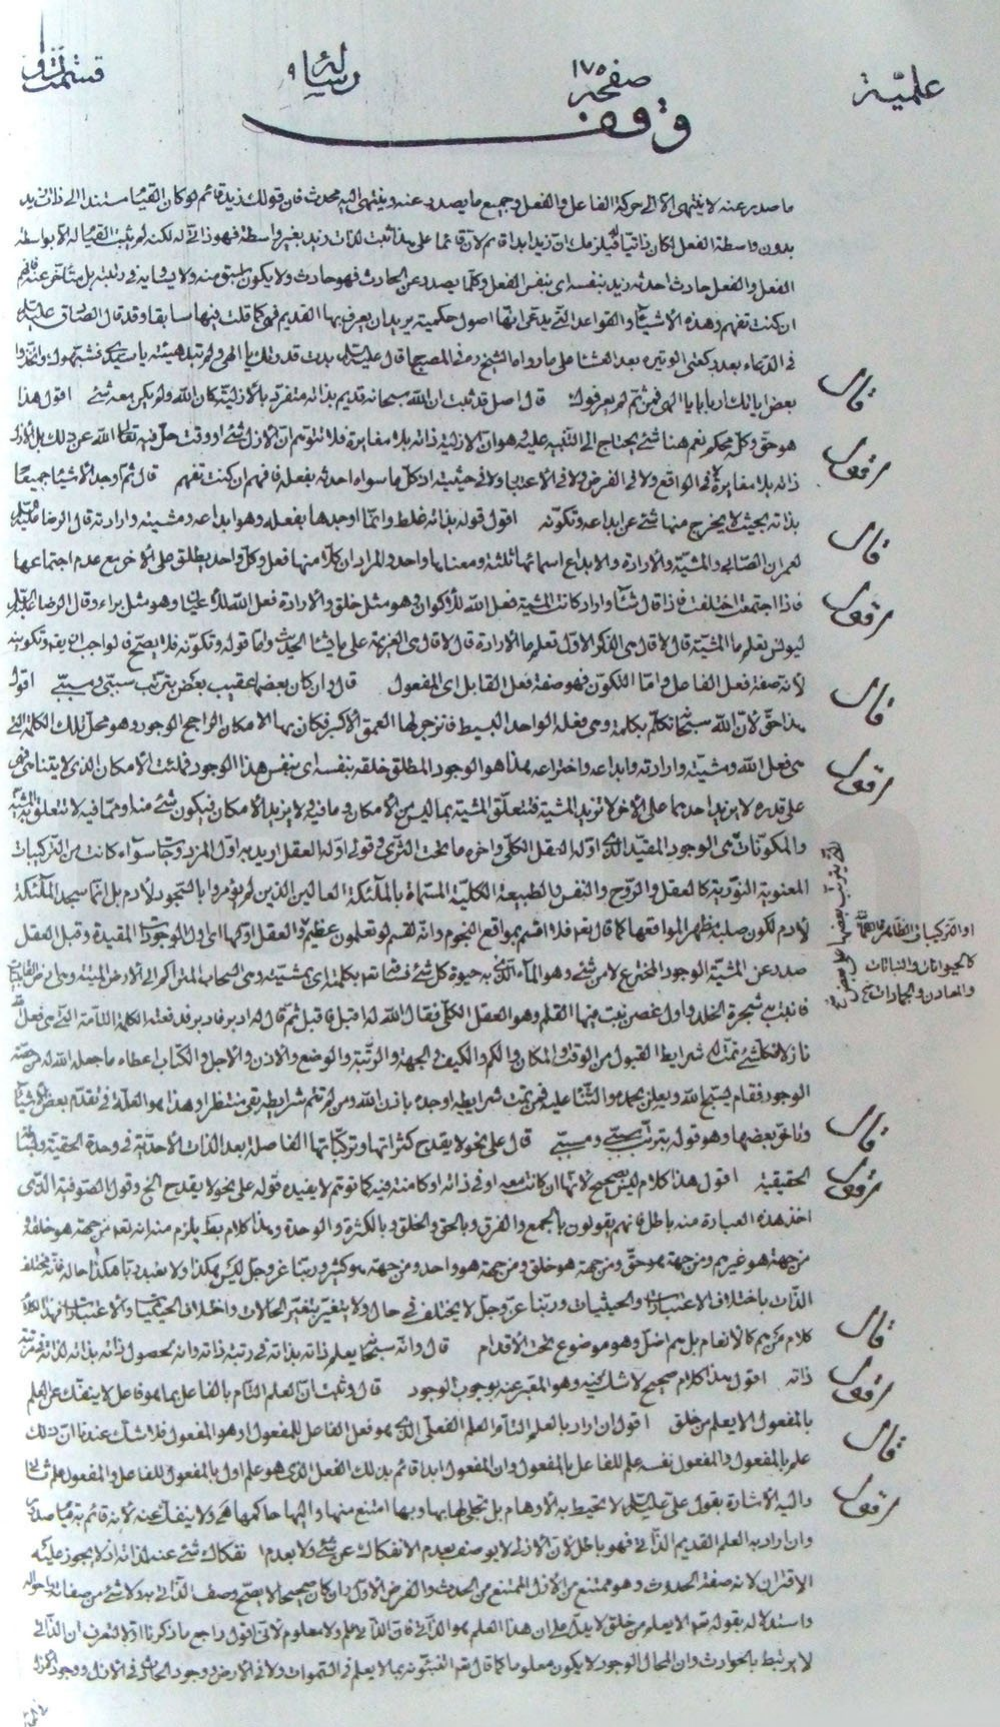 علميّة صفحة ١٧٥ رسالة ٩
وقف
ما صدر عنه لا ينتهى الا الى حركة الفاعل والفعل وجميع ما يصدر عنه وينتهى اليه محدث فان قولك زيد قائم لو كان القيام مستندا الى ذات زيد
بدون واسطة الفعل لكان ذاتيا فيلزمك ان زيدا ابدا قائم لان قائما على هذا ثبت لذات زيد بغير واسطة فهو ذاتى له لكنه لم يثبت القيام له الا بواسطة
الفعل والفعل حادث احدثه زيد بنفسه اى بنفس الفعل وكلما يصدر عن الحادث فهو حادث ولا يكون اسبق منه ولا يساويه فى رتبته بل متأخر عنه فافهم
ان كنت تفهم وهذه الاشياء والقواعد التى يدعى انها اصول حكمية يريد ان يعرف بها القديم فهى كما قلت فيها سابقا وقد قال الصادق عليه السلام
فى الدعاء بعد ركعتى الوتيرة بعد العشاء على ما رواه الشيخ ره فى المصباح قال عليه السلام بدت قدرتك يا الهى ولم تبد هيئته يا سيدى فشبهوك واتخذوا
بعض اياتك اربابا يا الهى فمن ثم لم يعرفوك قال اصل قد ثبت ان الله سبحانه قديم بذاته متفرد بالازلية كان الله ولم يكن معه شئ اقول هذا
هو حق وكل محكم نعم هنا شئ يحتاج الى التنبيه عليه وهو ان الازلية ذاته بلا مغايرة فلا تتوهم ان الازل شئ او وقت حل فيه تعالى الله عن ذلك بل الازل
ذاته بلا مغايرة لا فى الواقع ولا فى الفرض ولا فى الاعتبار ولا فى حيثية اذ كل ما سواه احدثه بفعله فافهم ان كنت تفهم قال ثم اوجد الاشياء جميعا
بذاته بحيث لا يخرج منها شئ عن ابداعه وتكوّنه اقول قوله بذاته غلط وانما اوجدها بفعله وهو ابداعه ومشيته وارادته قال الرضا عليه السلام
لعمران الصابى والمشية والارادة والابداع اسمائها ثلثة ومعناها واحد والمراد ان كلا منها فعل وكل واحد يطلق على الاخر مع عدم اجتماعها
فاذا اجتمعت اختلفت فاذا قال شاء واراد كانت المشية فعل الله للاكوان وهو مثل خلق والارادة فعل الله للاعيان وهو مثل براء وقال الرضا عليه السلام
ليونس تعلم ما المشية قال لا قال هى الذكر الاول تعلم ما الارادة قال لا قال هى العزيمة على ما يشاء الحديث واما قوله وتكونه فلا يصح فالواجب ان يقول تكوينه
لانه صفة فعل الفاعل واما التكوّن فهو صفة فعل القابل اى المفعول قال وان كان بعضها عقيب بعض بترتب سببى ومسببى اقول
هذا حق لان الله سبحانه تكلم بكلمة وهى فعله الواحد البسيط فانزجر لها العمق الاكبر فكان بها الامكان الراجح الوجود وهو محل تلك الكلمة التى
هى فعل الله ومشيته وارادته وابداعه واختراعه بهذا هو الوجود المطلق خلقه بنفسه اى بنفس هذا الوجود فملئت الامكان الذى لا يتناهى فهى
على قدره لا يزيد احدهما على الاخر لا تزيد المشية فتتعلق المشية بما ليس من الامكان وما فيه لا يزيد الامكان فيكون شئ منه او مما فيه لا تتعلق به المشية
والمكونات هى الوجود المقيد الذى اوله العقل الكلى واخره ما تحت الثرى فى قولى اوله العقل اريد به اول المزدوجات سواء كانت من التركيبات
المعنوية النورية كالعقل والروح والنفس والطبيعة الكلية المسماة بالملائكة العالين الذين لم يؤمروا بالسجود لادم بل انما سجد الملائكة
لادم لكون صلبه ظهر المواقعها كما قال تعالى فلا اقسم بمواقع النجوم وانه لقسم لو تعلمون عظيم والعقل اولها اى اول الموجودات المقيدة وقبل العقل
صدر عن المشية الوجود المخترع لا من شئ وهو الماء الذى به حيوة كل شئ فساقه بكلمته اى بمشيته وهى السحاب المتراكم الى الارض الميتة وهى ارض القابليات
فانبت به شجرة الخلد واول غصن نبت فيها القلم وهو العقل الكلى فقال الله له اقبل فاقبل ثم قال له ادبر فادبر فدفعته الكلمة التامة التى هى فعل الله
نازلا فكل شئ تمت له شرايط القبول من الوقت والمكان والكم والكيف والجهة والرتبة والوضع والاذن والاجل والكتاب اعطاه ما جعله الله له من حصة
الوجود فقام يسبح الله ويعلن بحمده والثناء عليه فمن تمت شرايطه اوجده باذن الله ومن لم تتم شرايطه بقى منتظرا وهذا هو العلة فى تقدم بعض الاشياء
وتأخر بعضها وهو قوله بترتب سببى ومسببى قال على نحو لا يقدح كثراتها وتركباتها الفاصلة بعد الذات الاحدية فى وحدة الحقيقية وبساطته
الحقيقية اقول هذا كلام ليس بصحيح لانها ان كانت معه او فى ذاته او كامنة فيه كما توهم لا يفيده قوله على نحو لا يقدح الخ وقول الصوفية الذى
اخذ هذه العبارة منه باطل فانهم يقولون بالجمع والفرق وبالحق والخلق وبالكثرة والوحدة وهذا كلام يلزم منه انه تعالى من جهة هو خلقه و
من جهة هو غيرهم ومن جهة هو حق ومن جهة هو خلق ومن جهة هو واحد ومن جهة هو كثير وربنا عز وجل ليس هكذا ولا نعبد ربا هكذا حاله فانه مختلف
الذات باختلاف الاعتبارات والحيثيات وربنا عز وجل لا يختلف فى حال ولا يتغير بتغير الحالات واختلاف الحيثيات والاعتبارات فهذا الكلام
كلام من هم كالانعام بل هم اضل وهو موضوع تحت الاقدام قال وانه سبحانه يعلم ذاته بذاته فى رتبة ذاته وانه بحصول ذاته بذاته لذاته فى مرتبة
ذاته اقول هذا كلام صحيح لا شك فيه وهو المعبر عنه بوجوب الوجود قال وثبت ان العلم التام بالفاعل بما هو فاعل لا ينفك عن العلم
بالمفعول الا يعلم من خلق اقول ان اراد بالعلم التام العلم الفعلى الذى هو فعل الفاعل للمفعول او هو المفعول فلا شك عندنا ان ذلك
علم بالمفعول والمفعول نفسه علم للفاعل بالمفعول وان المفعول ابدا قائم بذلك الفعل الذى هو علم اول بالمفعول للفاعل والمفعول علم ثان
واليه الاشارة بقول على عليه السلام لا تحيط به الاوهام بل تجلى لها بها وبها امتنع منها واليها حاكمها فهى ولا ينفك عنه لانه قائم به قيام صدور
وان اراد به العلم القديم الذاتى فهو باطل لان الازلى لا يوصف بعدم الانفكاك عن شئ ولا بعدم انفكاك شئ عنه لذاته اذ لا يجوز عليه
الاقتران لانه صفة الحدوث وهو ممتنع من الازل الممتنع من الحدث والفرض الاول وان كان صحيحا لا يصح وصف الذاتى به ولا شئ من صفاته واحواله
واستدلاله بقوله تعالى الا يعلم من خلق لا يدل على ان هذا العلم هو الذاتى فان الذاتى علم ولا معلوم لانى اقول راجع ما ذكرنا اولا لتعرف ان الذاتى
لا يرتبط بالحوادث وان المحال الوجود لا يكون معلوما كما قال تعالى اتنبئونه بما لا يعلم فى السموات ولا فى الارض ووجود الحادث فى الازل ووجود
قال
اقول
قال
اقول
قال
اقول
قال
اقول
قال
اقول
قال
اقول
او التركيبات الظاهرة
كالحيوانات والنباتات
والمعادن والجمادات